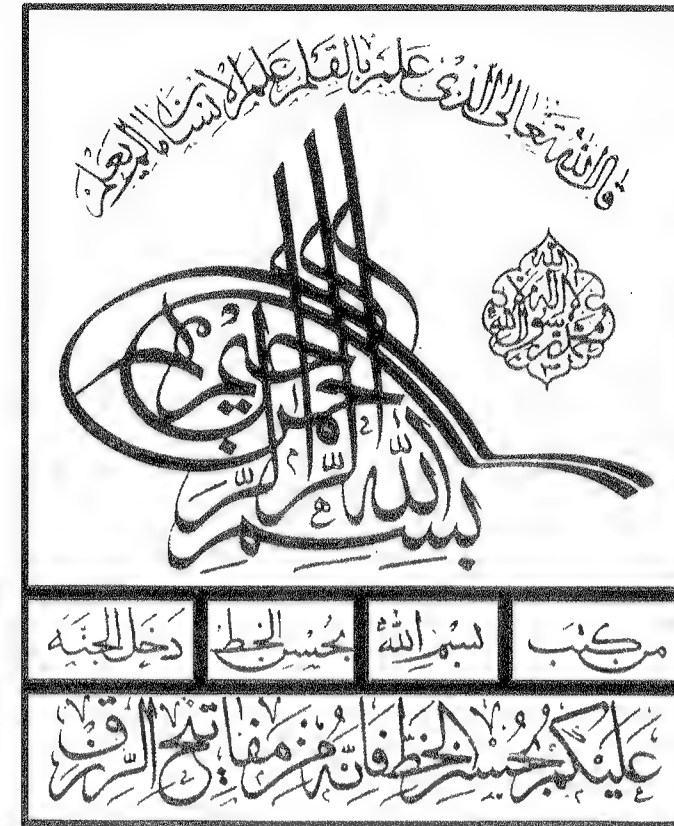 قال الله تعالى الذي علم بالقلم علم الإنسان ما لم يعلم
لا إله إلا الله محمد رسول الله
بسم الله الرحمن الرحيم
من كتب بسم الله بحسن الخط دخل الجنة
عليكم بحسن الخط فإنه من مفاتيح الرزق